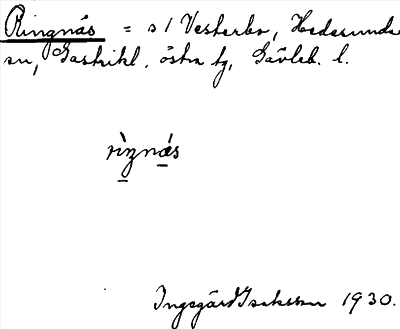 Ringnäs = s / Vesterbo, Hedesunda
sn, Gästrikl. östra tg, Gävleb. l.
rìŋnás
Ingegärd Isaksson 1930.